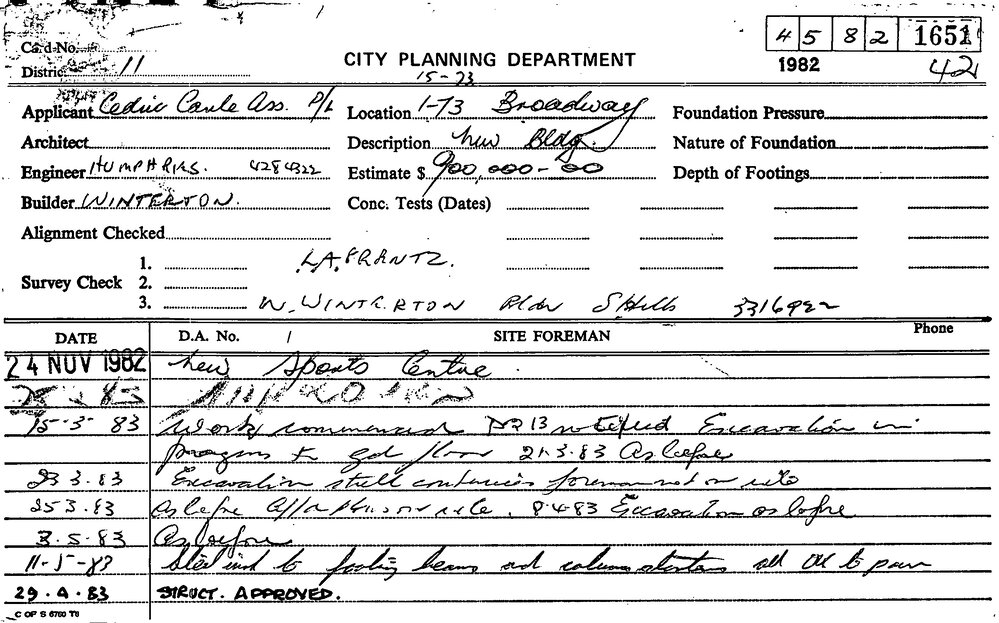 4 5 8 2 1651
Card No.
CITY PLANNING DEPARTMENT 1982 42
District 11
15-73
Applicant Cedric Carle Ass. P/L Location 1-73 Broadway Foundation Pressure
Architect Description New Bldg. Nature of Foundation
Engineer HUMPHRIES. 4284322 Estimate $ 900,000-00 Depth of Footings
Builder WINTERTON. Conc. Tests (Dates)
Alignment Checked
1. L.A. FRANTZ.
Survey Check 2.
3. W. WINTERTON Bldr S/Hills 3316922
DATE D.A. No. / SITE FOREMAN Phone
24 NOV 1982 New Sports Centre.
83
15-3 83 Work commenced DR 13 notified Excavation in
progress to gd floor 21.3.83 As before
23 3.83 Excavation still continues foreman not on site
25 3.83 As before on site. 8.4.83 Excavation as before
3.5.83 As before
11-5-83 Steel insd to footing beams and column starters all OK to pour
29.4.83 STRUCT. APPROVED.
C OF S 6760 T8